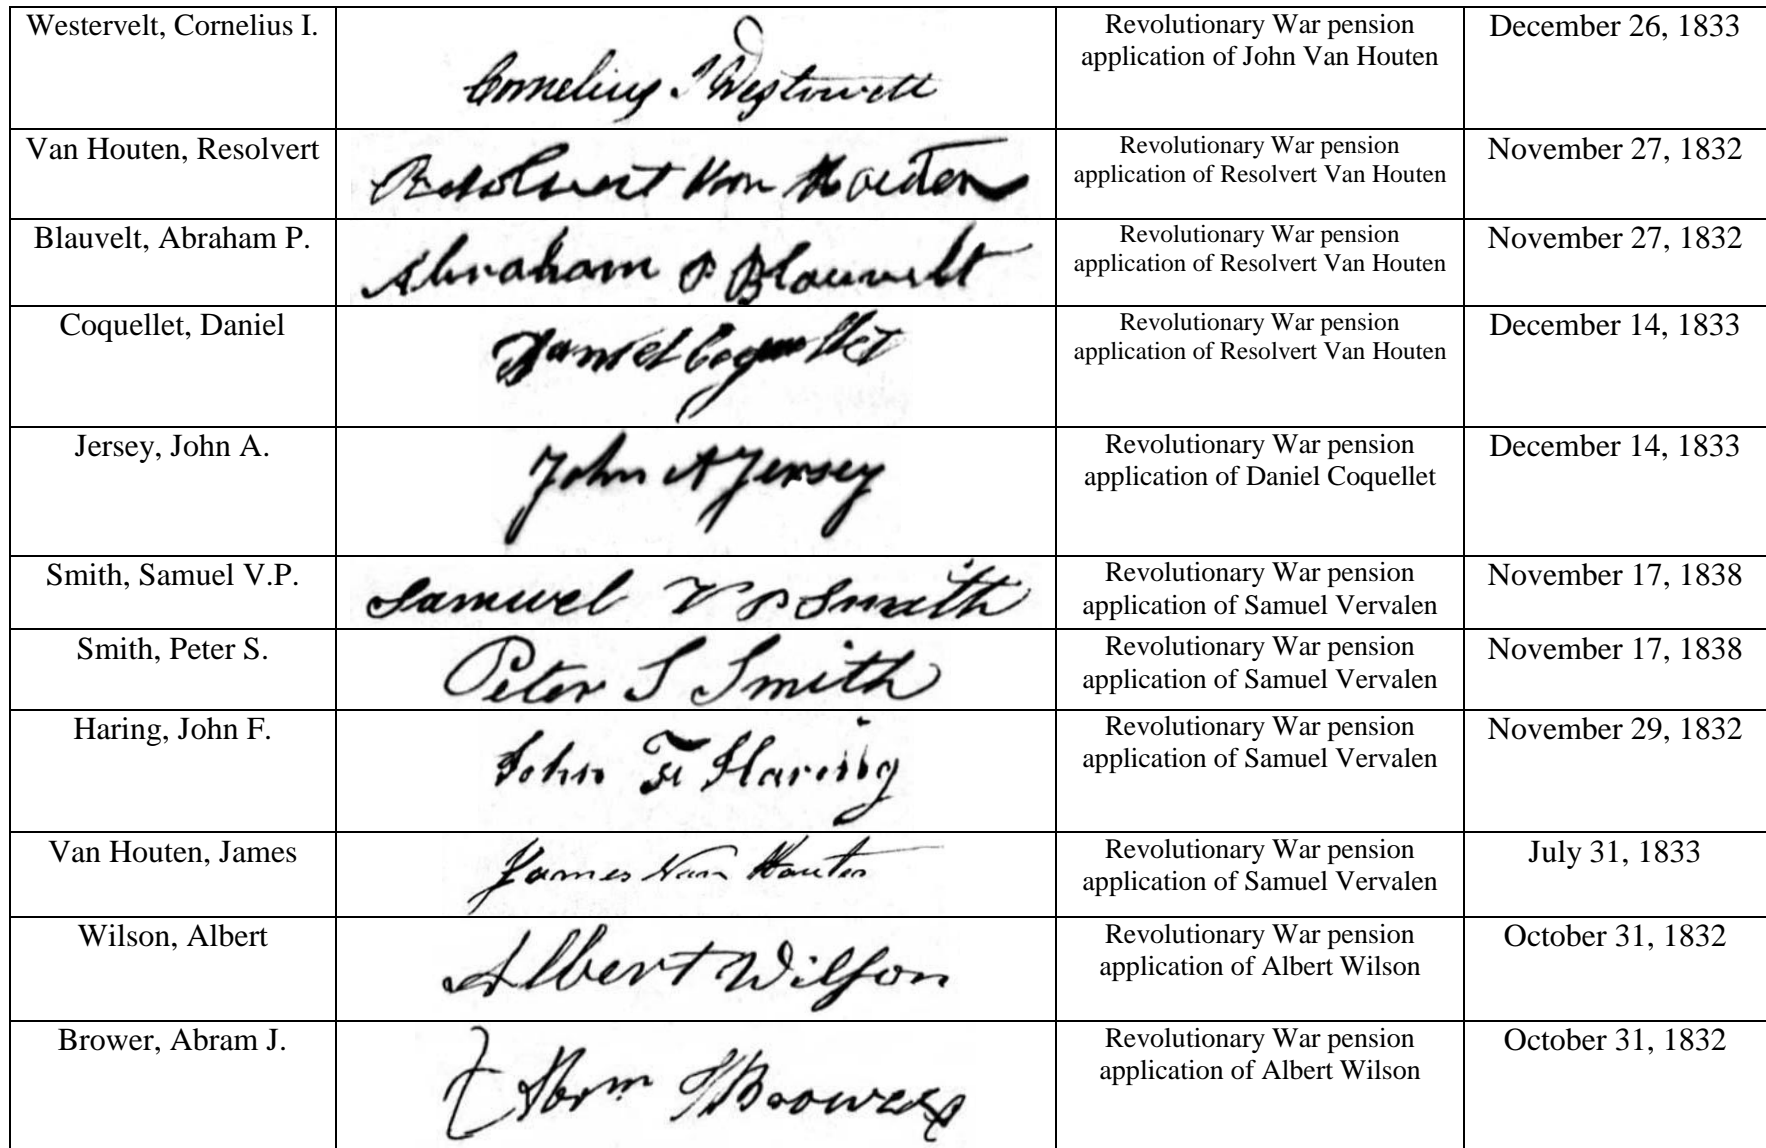 Westervelt, Cornelius I.
Cornelius I Westervelt
Revolutionary War pension
application of John Van Houten
December 26, 1833
Van Houten, Resolvert
Resolvert Van Houten
Revolutionary War pension
application of Resolvert Van Houten
November 27, 1832
Blauvelt, Abraham P.
Abraham P Blauvelt
Revolutionary War pension
application of Resolvert Van Houten
November 27, 1832
Coquellet, Daniel
Daniel Coquellet
Revolutionary War pension
application of Resolvert Van Houten
December 14, 1833
Jersey, John A.
John A Jersey
Revolutionary War pension
application of Daniel Coquellet
December 14, 1833
Smith, Samuel V.P.
Samuel V P Smith
Revolutionary War pension
application of Samuel Vervalen
November 17, 1838
Smith, Peter S.
Peter S Smith
Revolutionary War pension
application of Samuel Vervalen
November 17, 1838
Haring, John F.
John F Haring
Revolutionary War pension
application of Samuel Vervalen
November 29, 1832
Van Houten, James
James Van Houten
Revolutionary War pension
application of Samuel Vervalen
July 31, 1833
Wilson, Albert
Albert Wilson
Revolutionary War pension
application of Albert Wilson
October 31, 1832
Brower, Abram J.
Abrm J Brower
Revolutionary War pension
application of Albert Wilson
October 31, 1832